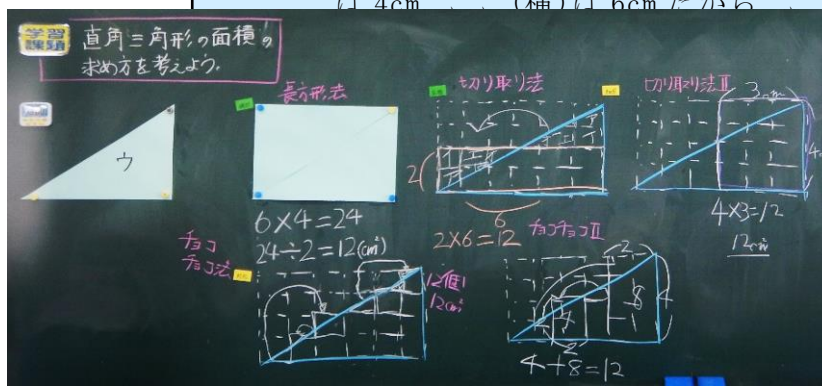 は 4cm 、、 (横)は 6cm だから 、
学習
課題
直角三角形の面積の
求め方を考えよう。
ウ
長方形法
6×4=24
24÷2=12(cm²)
切り取り法
2
6
2×6=12
切り取り法Ⅱ
3cm
4×3=12
12cm²
チョコ
チョコ法
12個
12cm²
チョコチョコⅡ
2
4
8
2
4+8=12